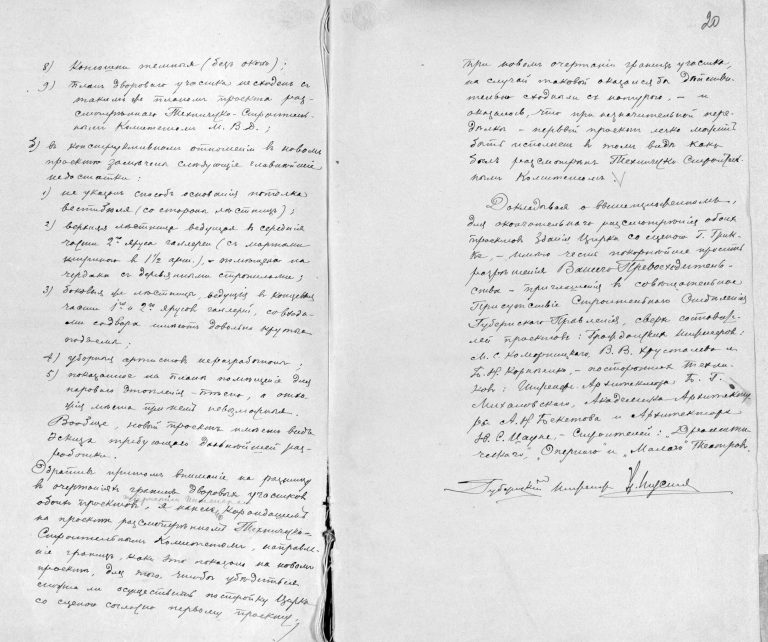 8) Конюшни темныя (безъ оконъ);
9) Планъ двороваго участка несходенъ съ
такимъ же планомъ проекта раз-
смотреннаго Техническо-Строитель-
нымъ Комитетомъ М. В. Д.;
въ конструктивномъ отношеніи въ новомъ
проектѣ замѣчены слѣдующіе главнѣйшіе
недостатки:
1) не указанъ способъ основанія потолка
вестибюля (со стороны лѣстницъ);
2) верхняя лѣстница ведущая въ середнія
части 2го яруса галлереи (съ маршами
шириною въ 1½ арш.),
чердака съ деревянными стропилами;
3) боковыя же лѣстницы, ведущія въ концевыя
части 1го и 2го ярусовъ галлерей, со входа-
ми со двора имѣютъ довольно крутые
подъемы;
4) уборныя артистовъ неразработаны;
5) показанное на планѣ помѣщеніе для
пароваго отопленія - тѣсно, а
мѣста при немъ невозможны.
Вообще, новый проектъ имѣетъ видъ
эскиза требующаго дальнѣйшей раз-
работки.
Обративъ при томъ вниманіе на разницу
въ очертаніяхъ границъ дворовыхъ участковъ
обоихъ проектовъ, я нанесъ карандашемъ
на проектѣ разсмотрѣнномъ Техническо-
Строительнымъ Комитетомъ, направле-
ніе границъ, какъ это показано на новомъ
проектѣ, для того, чтобы убѣдиться
можно ли осуществить постройку Цирка
со сценою согласно первому проекту,
20
при новомъ очертаніи границъ участка,
на случай таковой оказался бы дѣйстви-
тельно сходнымъ съ натурою, - и
оказалось, что при незначительной пере-
дѣлкѣ - первый проектъ легко можетъ
быть исполненъ въ томъ видѣ какъ
былъ разсмотренъ Техническо-Строитель-
нымъ Комитетомъ.
Докладывая о вышеизложенномъ,
для окончательнаго разсмотрѣнія обоихъ
проектовъ зданія Цирка со сценою Г. Грик-
ке, - имѣю честь покорнѣйше просить
разрѣшенія Вашего Превосходитель-
ства - пригласить въ совѣщательное
Присутствіе Строительнаго Отдѣленія
Губернскаго Правленія, сверхъ состави-
лей проектовъ: Гражданскихъ Инженеровъ:
М. С. Коморницкаго, В. В. Хрусталева и
Б. Н. Корнѣенко, - постороннихъ Техни-
ковъ: Инженеръ-Архитектора Б. Г.
Михаловскаго, Академика Архитекту-
ры А. Н. Бекетова и Архитектора
Ю. С. Цауне, - Строителей: "Драмати-
ческаго", "Опернаго" и "Малаго" Театровъ.
Губернскій Инженеръ